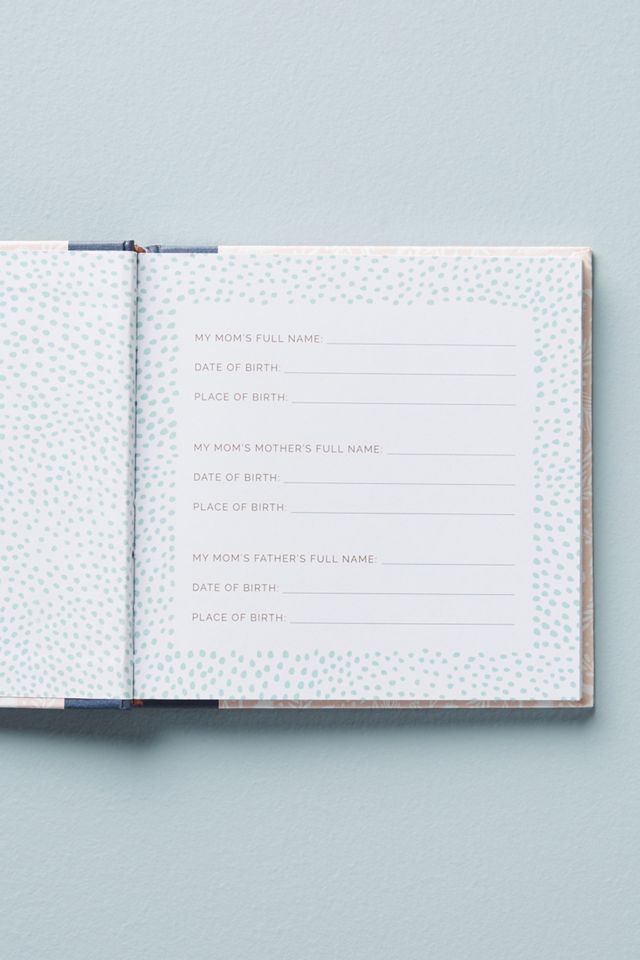 MY MOM'S FULL NAME:
DATE OF BIRTH:
PLACE OF BIRTH:
MY MOM'S MOTHER'S FULL NAME:
DATE OF BIRTH:
PLACE OF BIRTH:
MY MOM'S FATHER'S FULL NAME:
DATE OF BIRTH:
PLACE OF BIRTH: